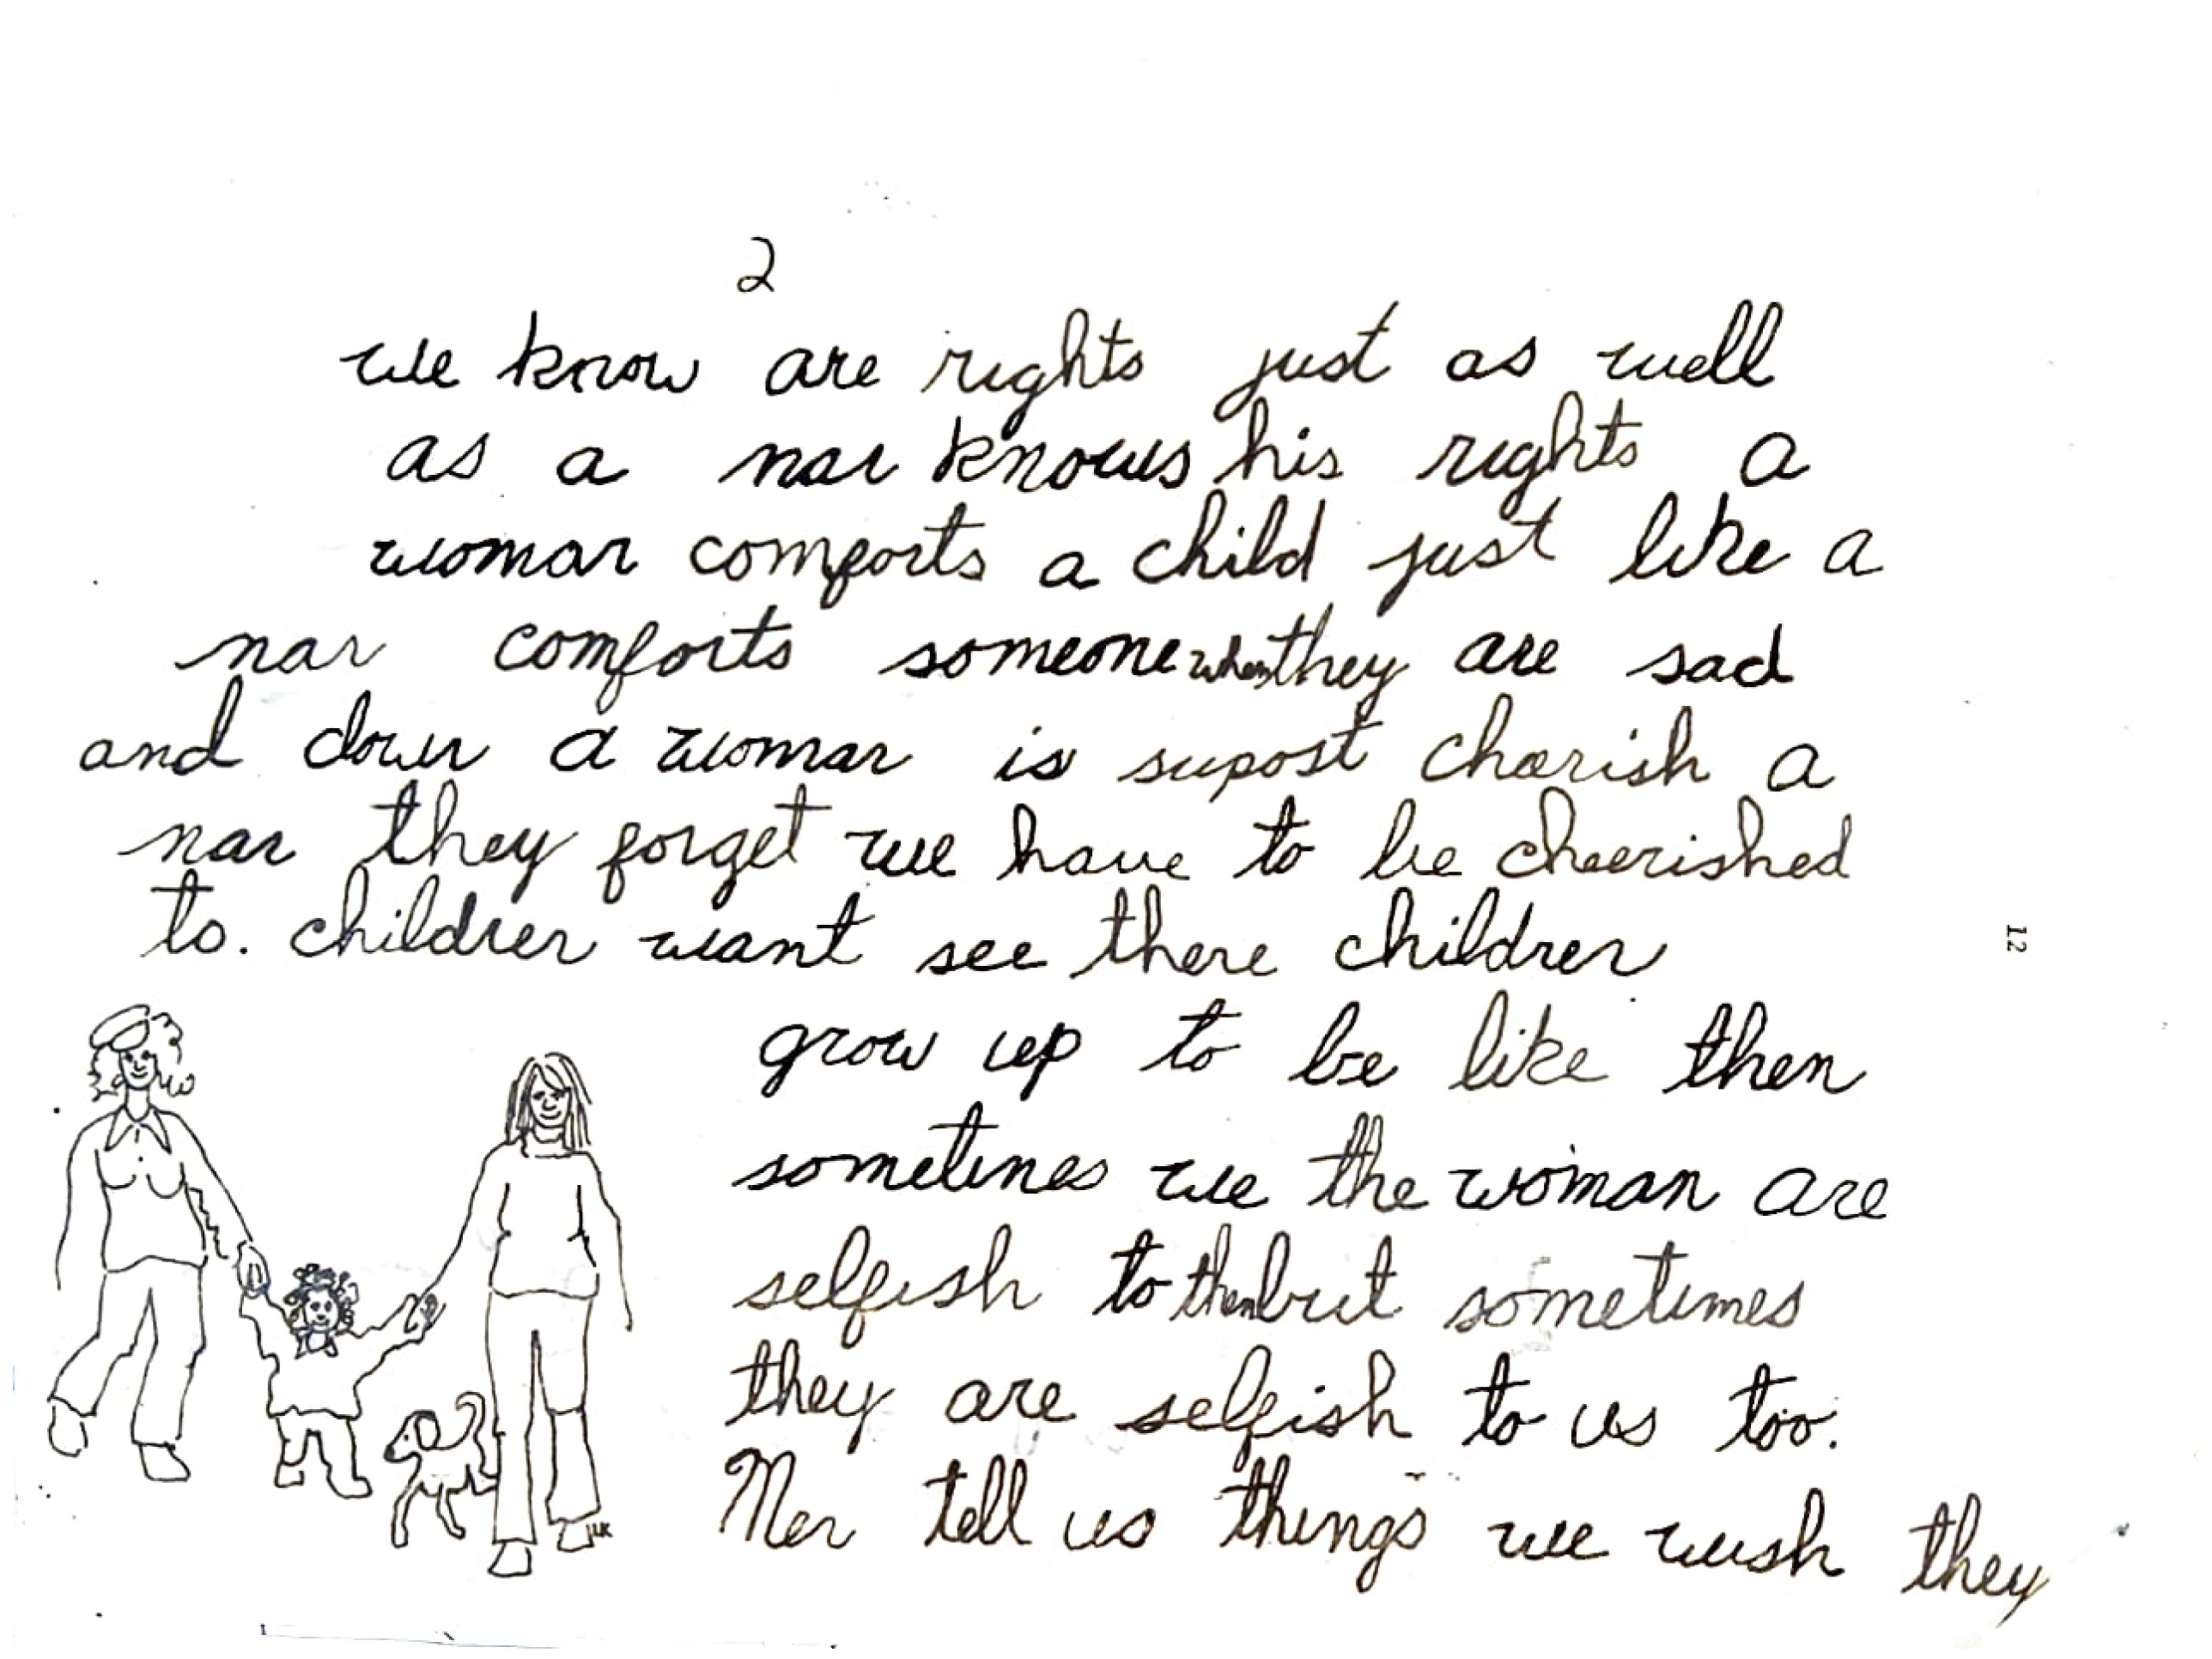 2
we know are rights just as well
as a man knows his rights a
woman comforts a child just like a
man comforts someone when they are sad
and down a woman is supost cherish a
man they forget we have to be cheerished
to. children want see there children
grow up to be like then
sometimes we the woman are
selfish to them but sometimes
they are selfish to us too.
Men tell us things we wish they
12
LK